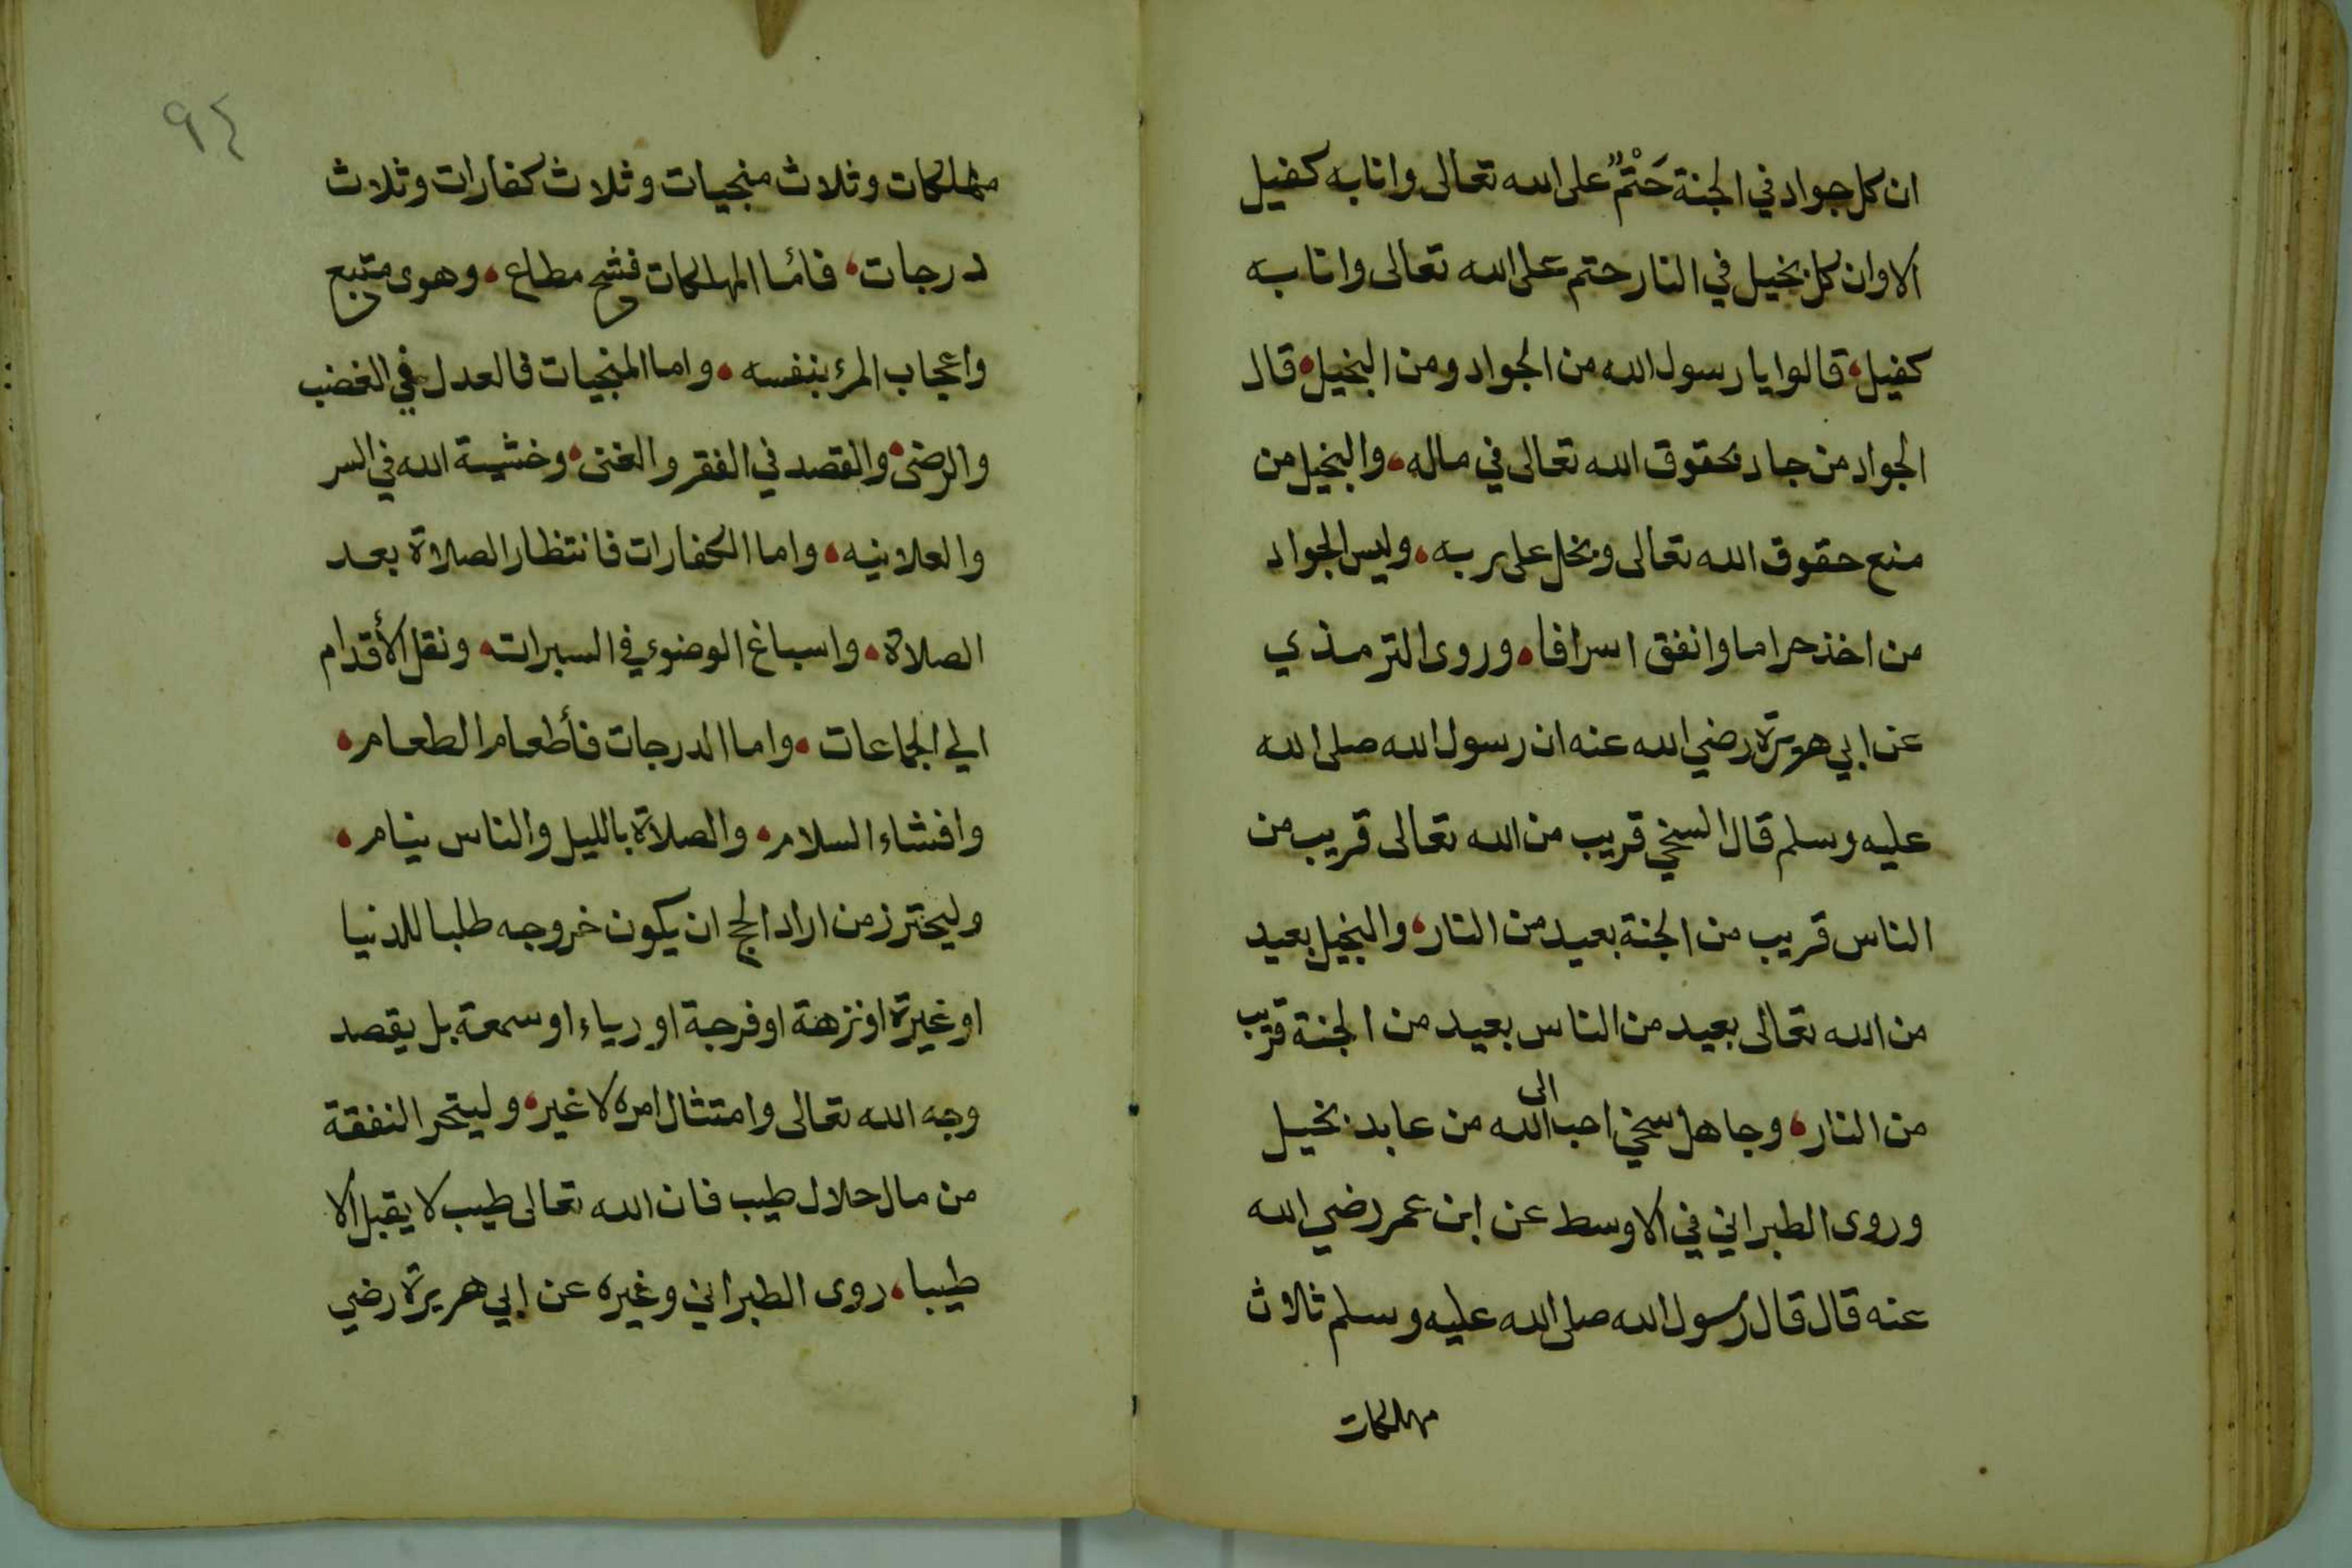 ان كل جواد في الجنة حَتْمٌ على الله تعالى وانا به كفيل
الا وان كل بخيل في النار حتم على الله تعالى وانا به
كفيل، قالوا يا رسول الله من الجواد ومن البخيل، قال
الجواد من جاد بحقوق الله تعالى في ماله، والبخيل من
منع حقوق الله تعالى وبخل على ربه، وليس الجواد
من اخذ حراما وانفق اسرافا، وروى الترمذي
عن ابي هريرة رضي الله عنه ان رسول الله صلى الله
عليه وسلم قال السخي قريب من الله تعالى قريب من
الناس قريب من الجنة بعيد من النار، والبخيل بعيد
من الله تعالى بعيد من الناس بعيد من الجنة قريب
من النار، وجاهل سخي احب الى الله من عابد بخيل
وروى الطبراني في الاوسط عن ابن عمر رضي الله
عنه قال قال رسول الله صلى الله عليه وسلم ثلاث
مهلكات
٩٤
مهلكات وثلاث منجيات وثلاث كفارات وثلاث
درجات، فاما المهلكات فشح مطاع، وهوى متبع
واعجاب المرء بنفسه، واما المنجيات فالعدل في الغضب
والرضى، والقصد في الفقر والغنى، وخشية الله في السر
والعلانيه، واما الكفارات فانتظار الصلاة بعد
الصلاة، واسباغ الوضوء في السبرات، ونقل الأقدام
الي الجماعات، واما الدرجات فأطعام الطعام،
وافشاء السلام، والصلاة بالليل والناس نيام،
وليحترز من اراد الحج ان يكون خروجه طلبا للدنيا
او غيرة او نزهة او فرجة او رياء او سمعة بل يقصد
وجه الله تعالى وامتثال امره لا غير، وليتحر النفقة
من مال حلال طيب فان الله تعالى طيب لا يقبل الا
طيبا، روى الطبراني وغيره عن ابي هريرة رضي